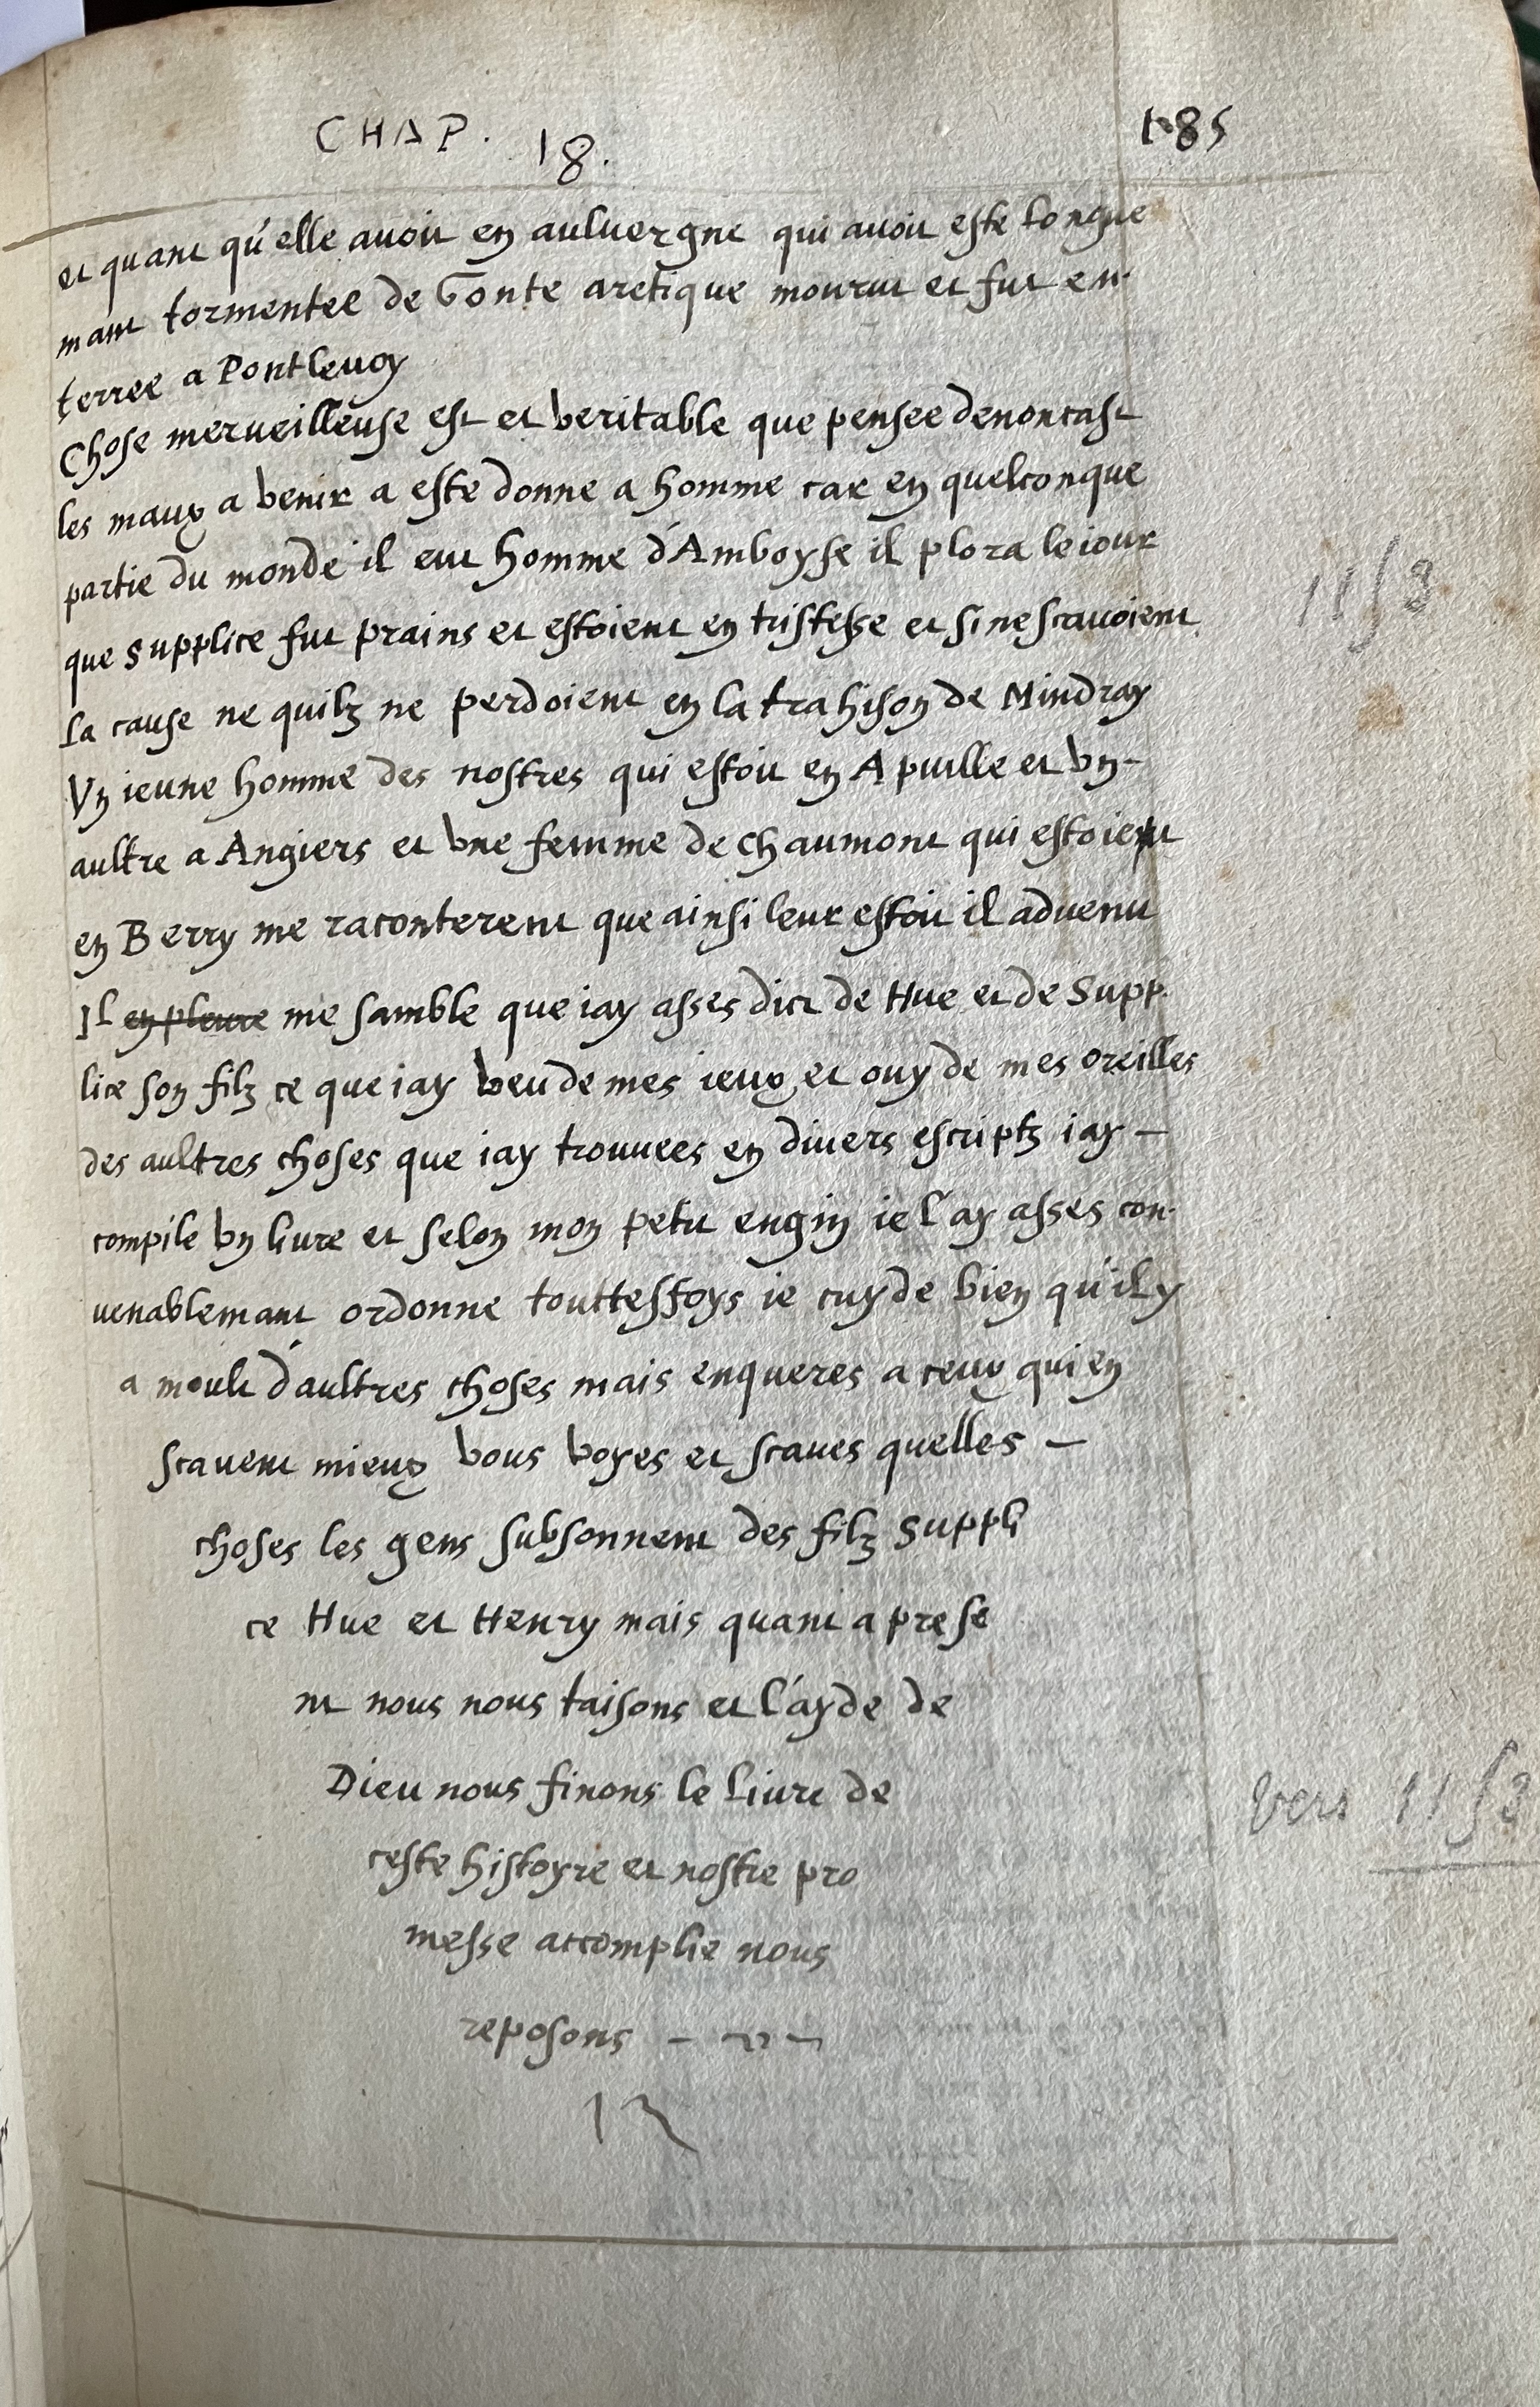 CHAP. 18. 185
et quant qu'elle avoit en auluergne qui avoit este longue
mant tormentee de Goute aretique mourut et fut en-
terree a Pontlevoy
Chose merveilleuse est et veritable que pensee denoncast
les maux a venir a este donne a homme car en quelconque
partie du monde il eut homme d'Amboyse il plora le iour
que supplice fut prains et estoient en tristesse et si ne scavoient
la cause ne quilz ne perdoient en la trahison de Mindray
Vn ieune homme des nostres qui estoit en Apuille et vn-
aultre a Angiers et vne femme de chaumont qui estoient
en Berry me raconterent que ainsi leur estoit il advenu
Il en pleure me samble que iay asses dict de Hue et de Supp-
lice son filz ce que iay veu de mes ieux et ouy de mes oreilles
des aultres choses que iay trouuees en divers escriptz iay —
compile vn livre et selon mon petit engin ie l'ay asses con-
uenablemant ordonne touttesfoys ie cuyde bien qu'il y
a moult d'aultres choses mais enqueres a ceux qui en
scavent mieux vous voyes et scaves quelles —
choses les gens subsonnent des filz suppli
ce Hue et Henry mais quant a prese
nt nous nous taisons et l'ayde de
Dieu nous finons le livre de
ceste histoyre et nostre pro
messe accomplie nous
reposons
11/3
vers 11/3